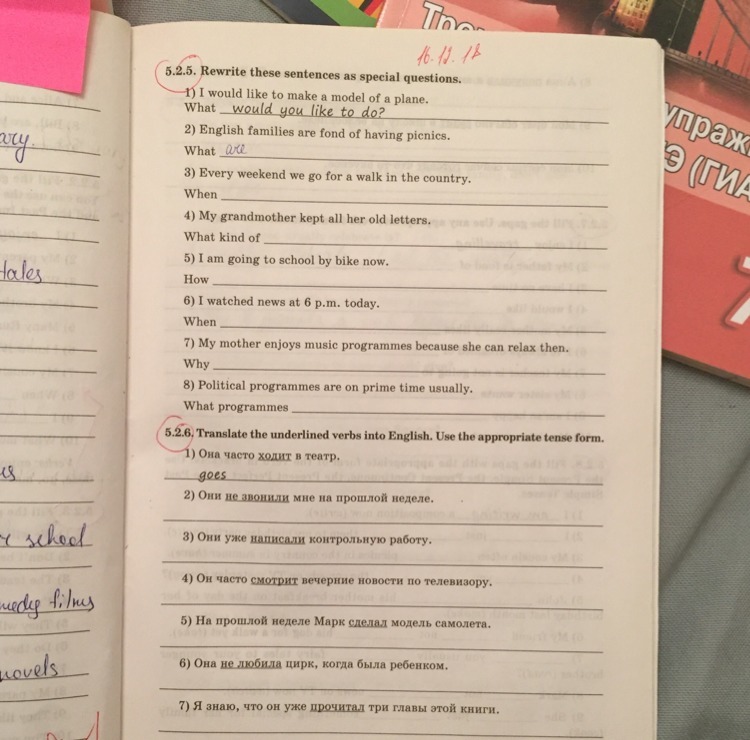 ary.
tales
school
films
novels
16.12.17
5.2.5. Rewrite these sentences as special questions.
1) I would like to make a model of a plane.
What would you like to do?
2) English families are fond of having picnics.
What are
3) Every weekend we go for a walk in the country.
When
4) My grandmother kept all her old letters.
What kind of
5) I am going to school by bike now.
How
6) I watched news at 6 p.m. today.
When
7) My mother enjoys music programmes because she can relax then.
Why
8) Political programmes are on prime time usually.
What programmes
5.2.6. Translate the underlined verbs into English. Use the appropriate tense form.
1) Она часто ходит в театр.
goes
2) Они не звонили мне на прошлой неделе.
3) Они уже написали контрольную работу.
4) Он часто смотрит вечерние новости по телевизору.
5) На прошлой неделе Марк сделал модель самолета.
6) Она не любила цирк, когда была ребенком.
7) Я знаю, что он уже прочитал три главы этой книги.
упраж
Э (ГИА
7